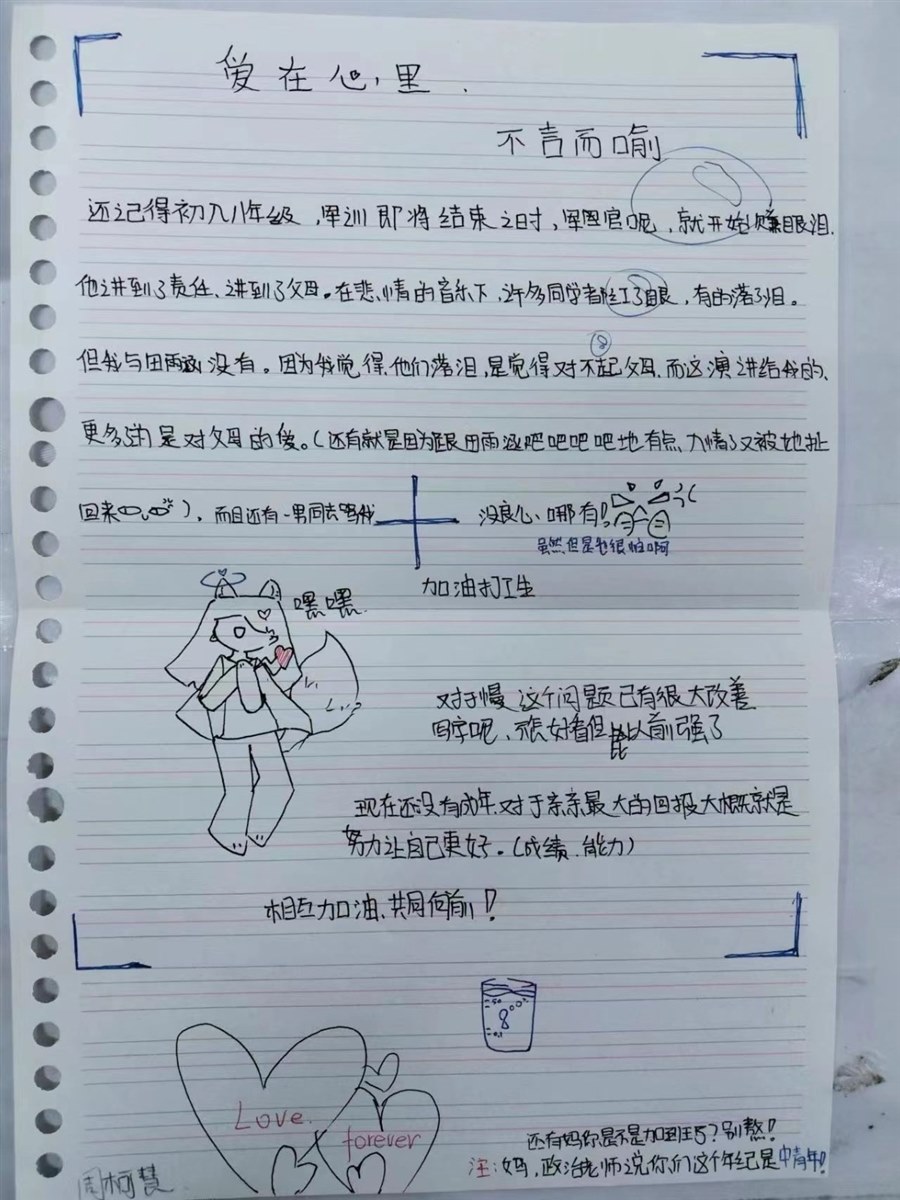 爱在心里.
不言而喻
还记得初入八年级,军训即将结束之时,军教官呢,就开始赚眼泪.
他讲到了责任、讲到了父母。在悲情的音乐下,许多同学都红了眼,有的落了泪。
但我与田雨涵没有。因为我觉得他们落泪,是觉得对不起父母.而这演讲给我的、
更多的是对父母的爱。(还有就是因为跟田雨涵吧吧吧吧地有点入情了又被她扯
回来),而且还有一男同去骂我
没良心、哪有!
虽然但是也很怕啊
嘿嘿.
加油打工生
对于慢这个问题已有很大改善
写字呢、不太好看但比以前强了
现在还没有成年.对于亲亲最大的回报大概就是
努力让自己更好。(成绩.能力)
相互加油、共同向前!
8
Love.
forever
还有妈你是不是加到王5?别熬!
注:妈,政治老师说你们这个年纪是中青年!
周柯慧